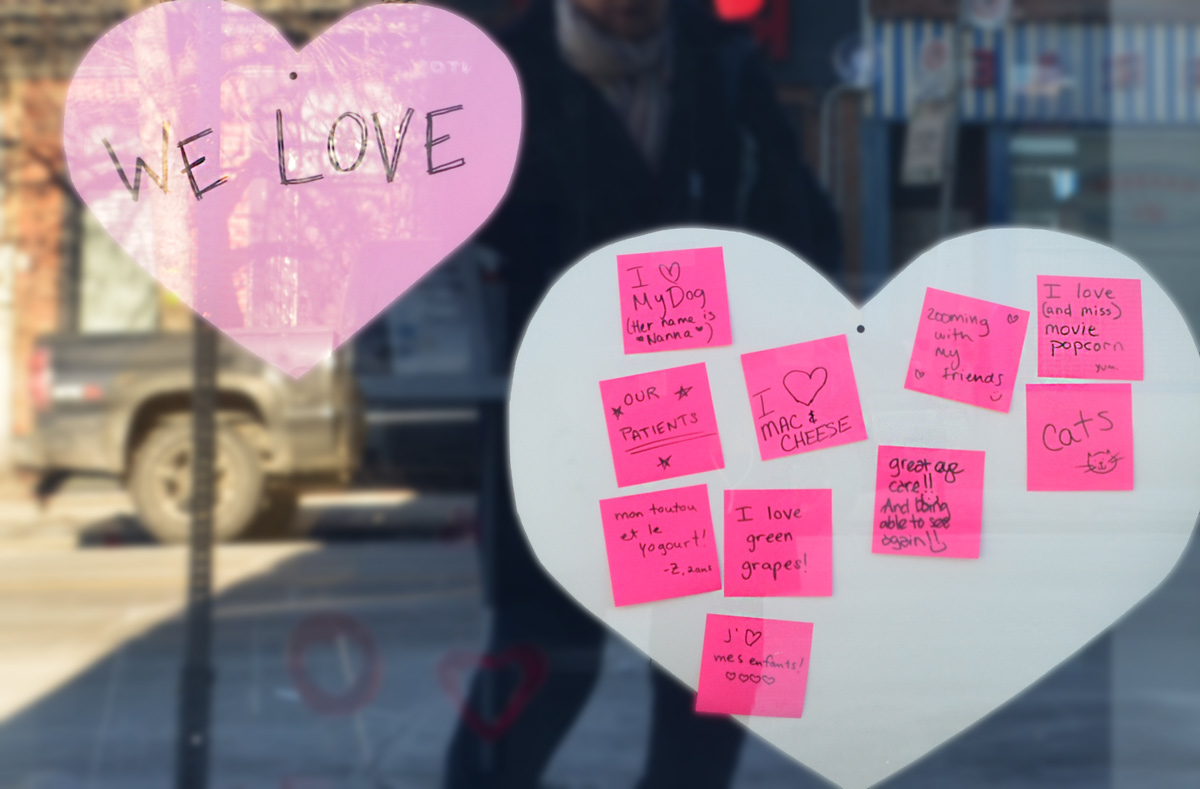 WE LOVE
I ♡
My Dog
(Her name is
"Nanna")
OUR
PATIENTS
mon toutou
et le
yogourt!
-Z, 2ans
I ♡
MAC &
CHEESE
I love
green
grapes!
J'♡
mes enfants!
♡♡♡♡
zooming
with
my
friends
I love
(and miss)
movie
popcorn
yum.
Cats
great eye
care!!
And being
able to see
again!!